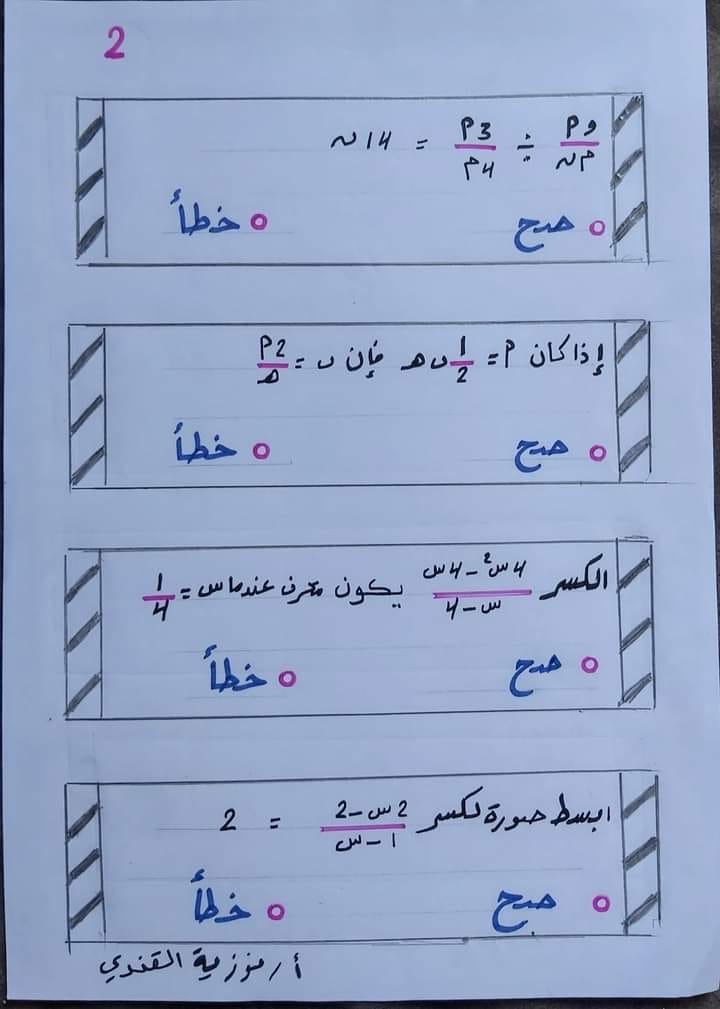 2
٩و/م‌ن ÷ 3م/4م = 14ن
صح خطأ
إذا كان م = 1/2 ں ھ فإن ں = 2م/ھ
صح خطأ
الكسر 4س²-4س/س-4 يكون معرف عندما س = 1/4
صح خطأ
ابسط صورة لكسر 2س-2/1-س = 2
صح خطأ
أ/فوزية القندي